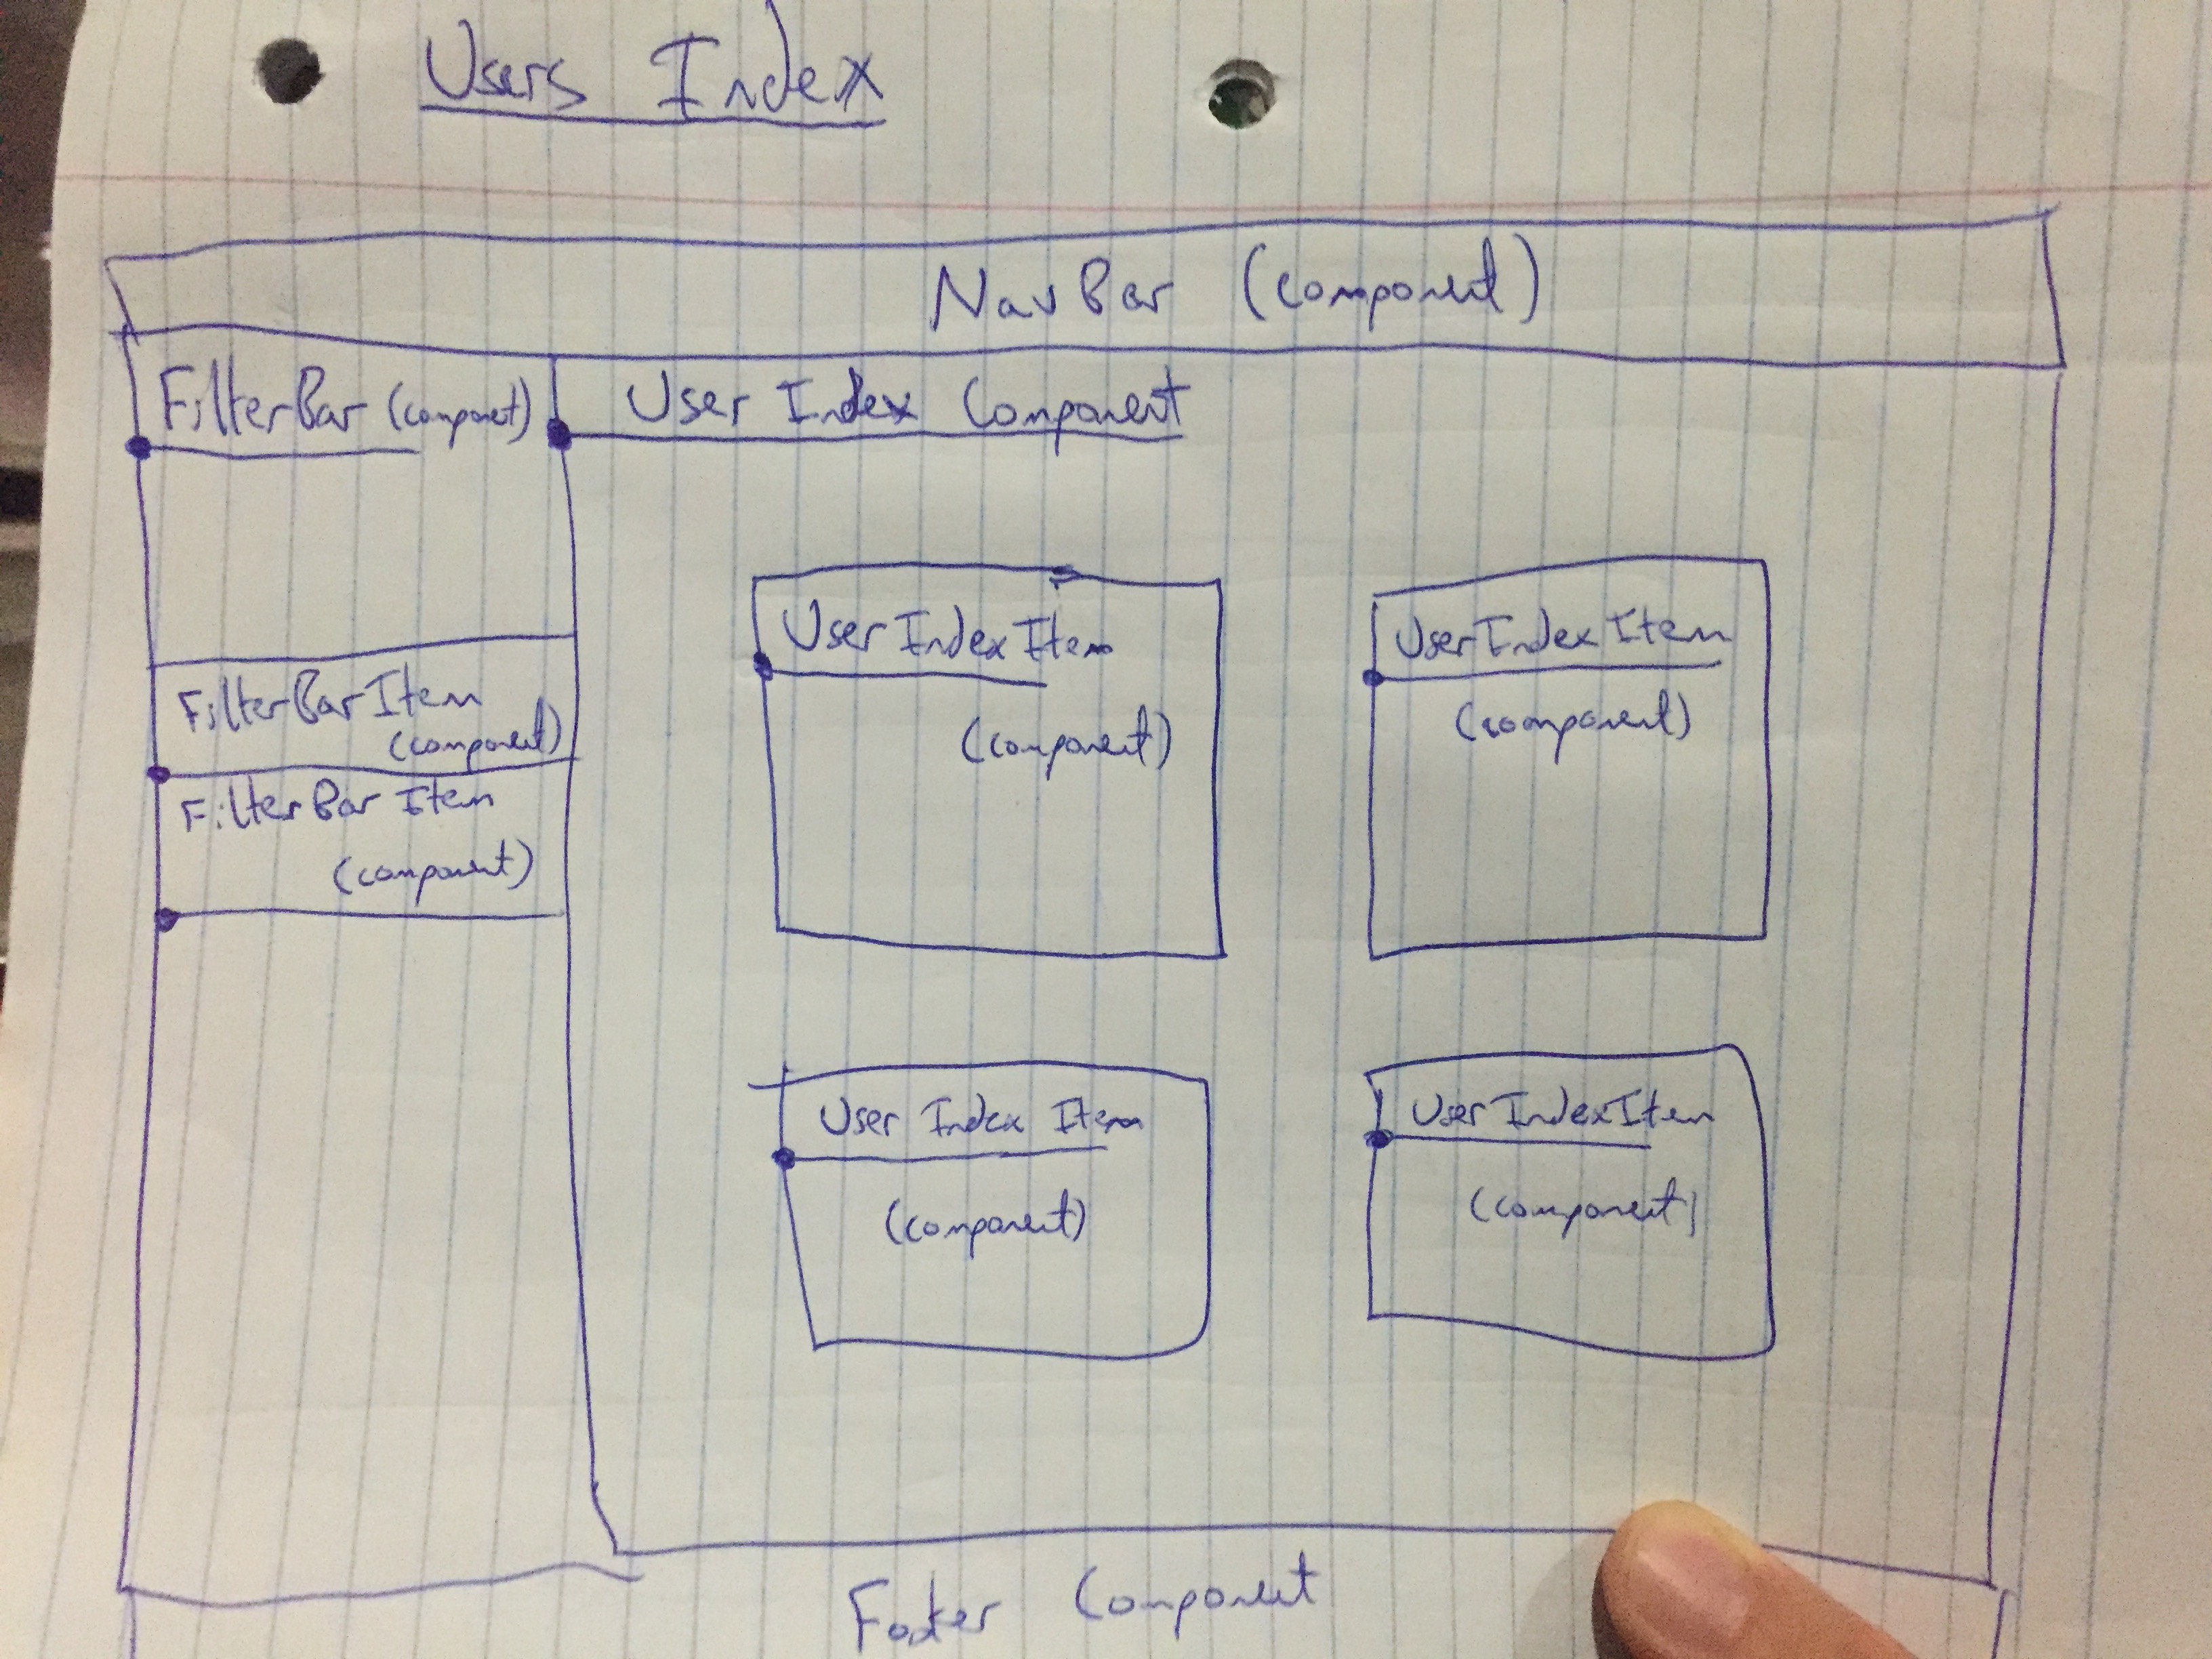 Users Index
NavBar (component)
FilterBar (componet)
User Index Component
UserIndexItem
(component)
UserIndexItem
(component)
FilterBarItem
(component)
FilterBar Item
(component)
User Index Item
(component)
UserIndexItem
(component)
Footer Component